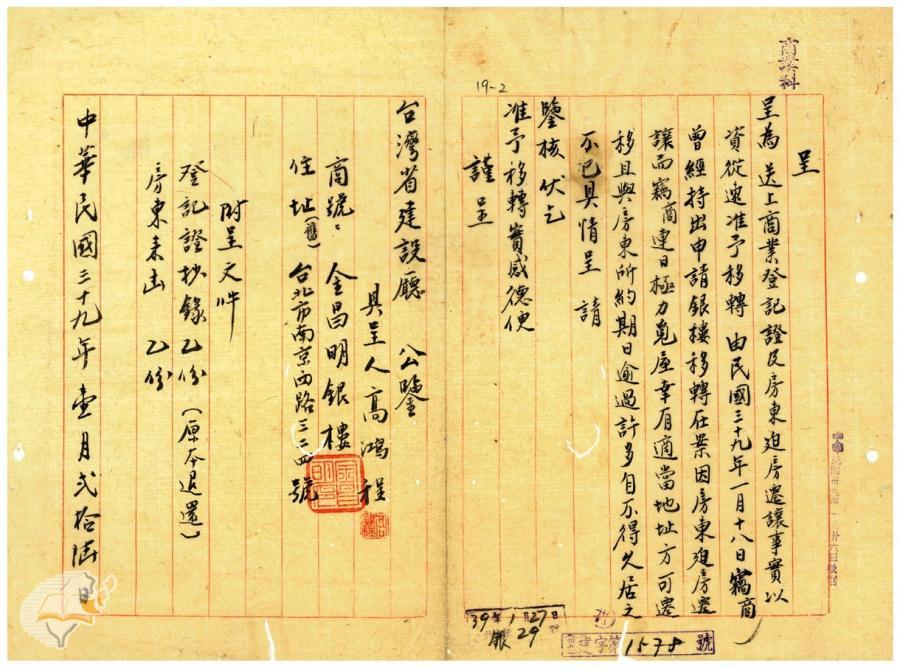 商業科
呈
呈為 送上商業登記證及房東迫房遷讓事實以
資從速准予移轉 由民國三十九年一月十八日竊商
曾經持出申請銀樓移轉在案因房東迫房遷
讓而竊商連日極力覓屋幸有適當地址方可遷
移且與房東所約期日逾過許多自不得久居之
不已具情呈 請
鑒核伏乞
准予移轉實感德便
謹呈
台灣省建設廳 公鑒
具呈人高鴻程
商號：金昌明銀樓
住址(舊) 台北市南京西路三二四號
附呈文件
登記證抄錄乙份(原本退還)
房東來函 乙份
中華民國三十九年壹月弍拾陸日
19-2
39年1月27日
銀29
建字第1578號